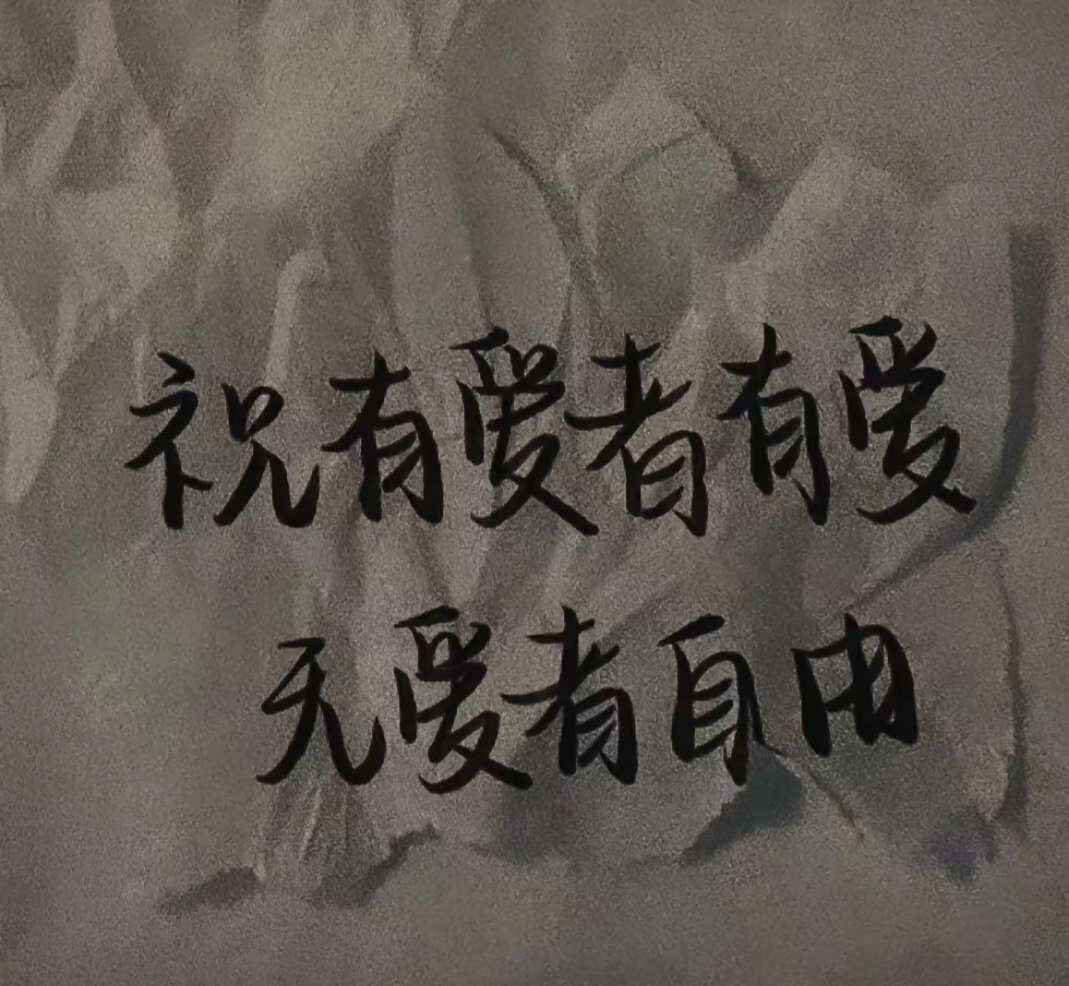 祝有爱者有爱
无爱者自由